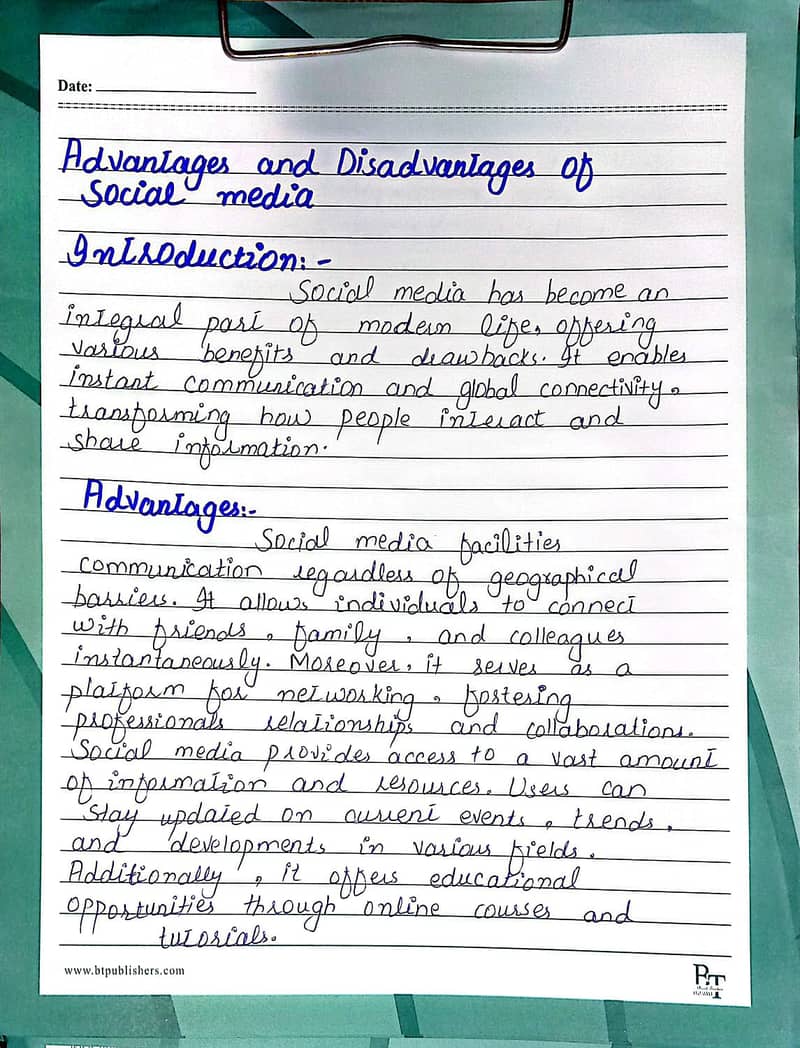 Date:
Advantages and Disadvantages of
Social media
Introduction:-
Social media has become an
integral part of modern life, offering
various benefits and drawbacks. It enables
instant communication and global connectivity,
transforming how people interact and
share information.
Advantages:-
Social media facilities
communication regardless of geographical
barriers. It allows individuals to connect
with friends, family, and colleagues
instantaneously. Moreover, it serves as a
platform for networking, fostering
professionals relationships and collaborations.
Social media provides access to a vast amount
of information and resources. Users can
stay updated on current events, trends,
and developments in various fields.
Additionally, it offers educational
opportunities through online courses and
tutorials.
www.btpublishers.com
BT